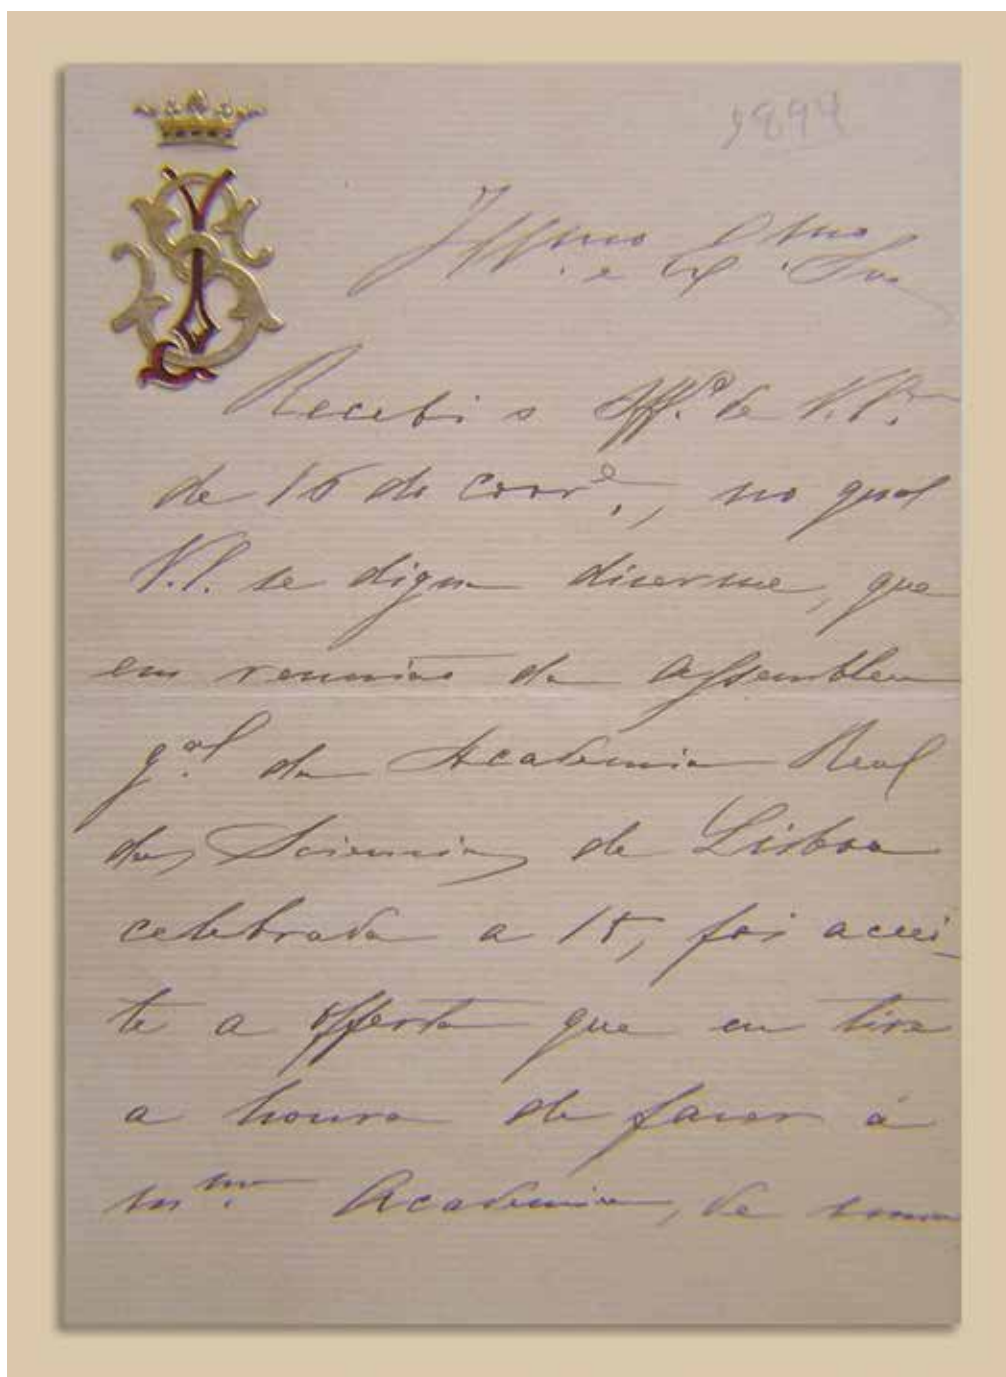 Ill.mo e Ex.mo Snr
Recebi o Off.º de V. E.
de 16 do corr.e, no qual
V. E. se digna diserme, que
em reunião da Assemblea
g.al da Academia Real
das Sciencias de Lisboa
celebrada a 15, foi accei-
te a offerta que eu tive
a honra de faser á
m.ma Academia, de huma